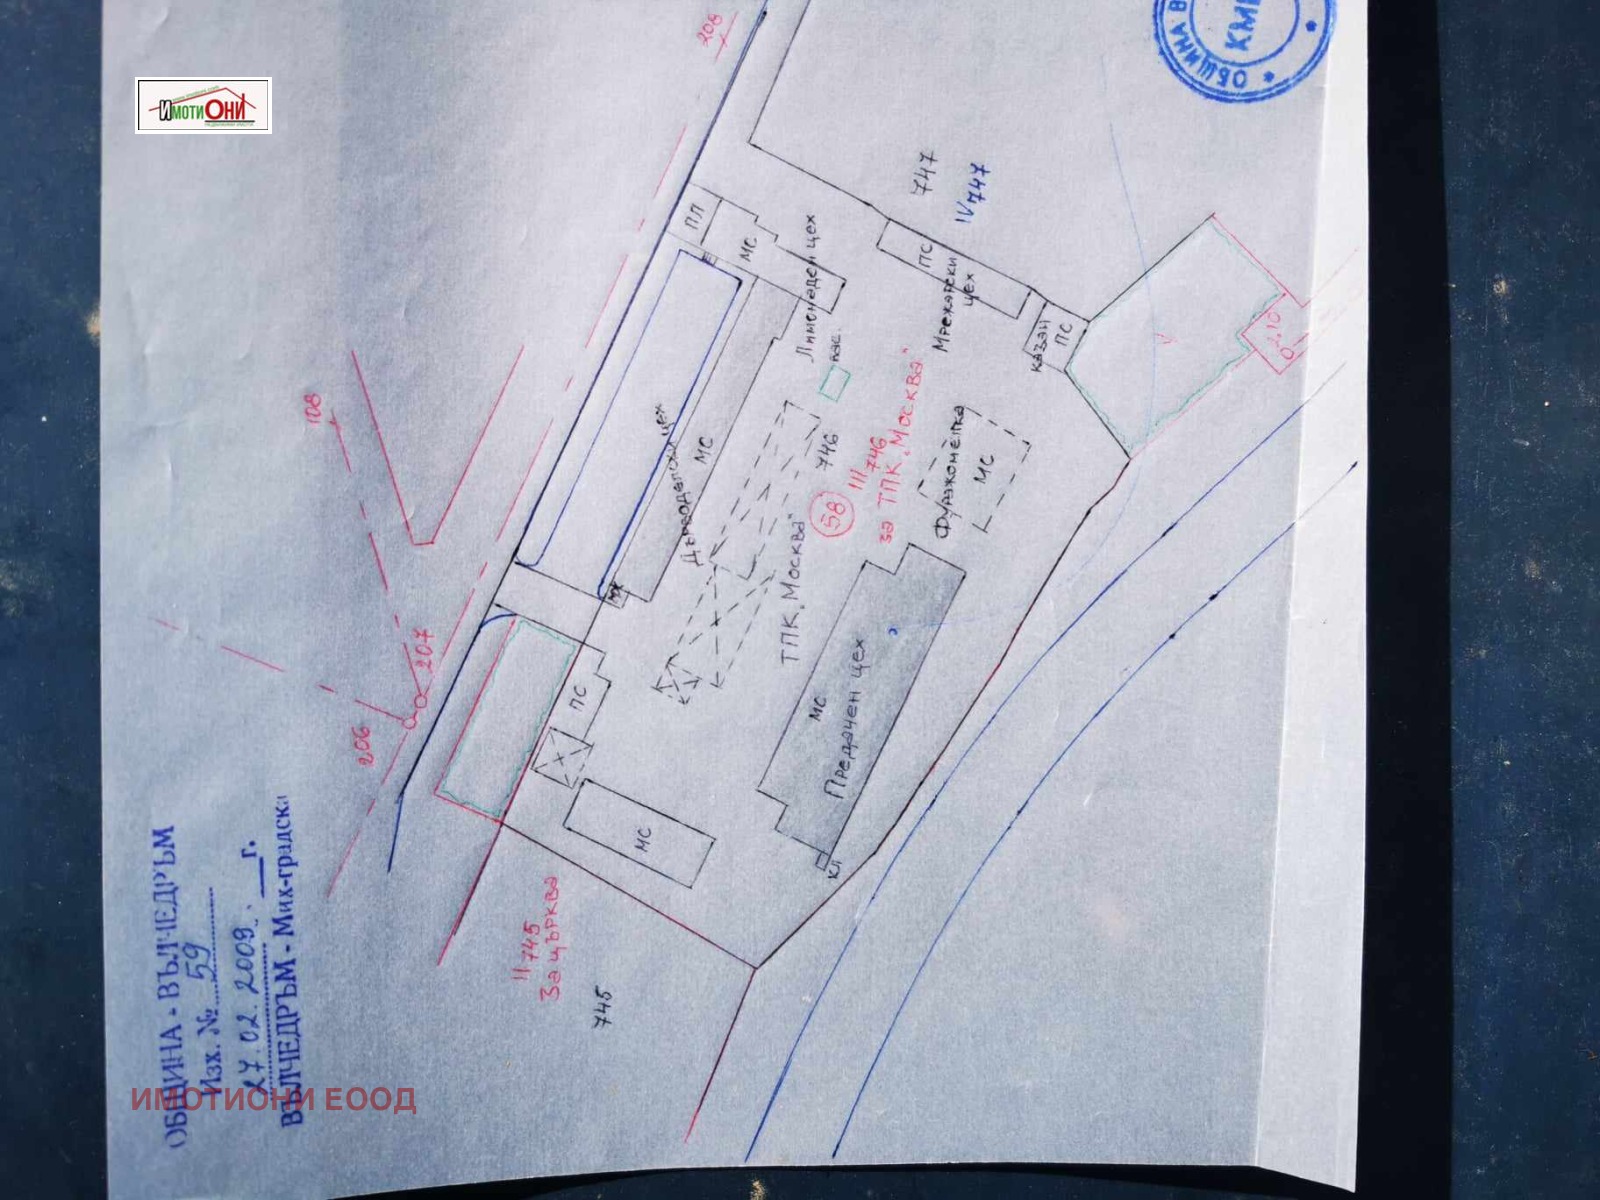 ИМОТИ ОНИ
ОБЩИНА - ВЪЛЧЕДРЪМ
Изх. № 59
27.02.2009 г.
ВЪЛЧЕДРЪМ - Мих-градска
ИМОТИОНИ ЕООД
ОБЩИНА В
КМЕ
208
108
207
206
747
IV 747
ПЛ
МС
Лимонаден цех
ПС
Мрежарски
цех
казан
ПС
2.10
0
Дърводелски цех
МС
746
58
III 746
за ТПК „Москва"
ТПК „Москва"
Фуражомелка
МС
МС
Предачен цех
ПС
МС
КЛ
II 745
За църква
745